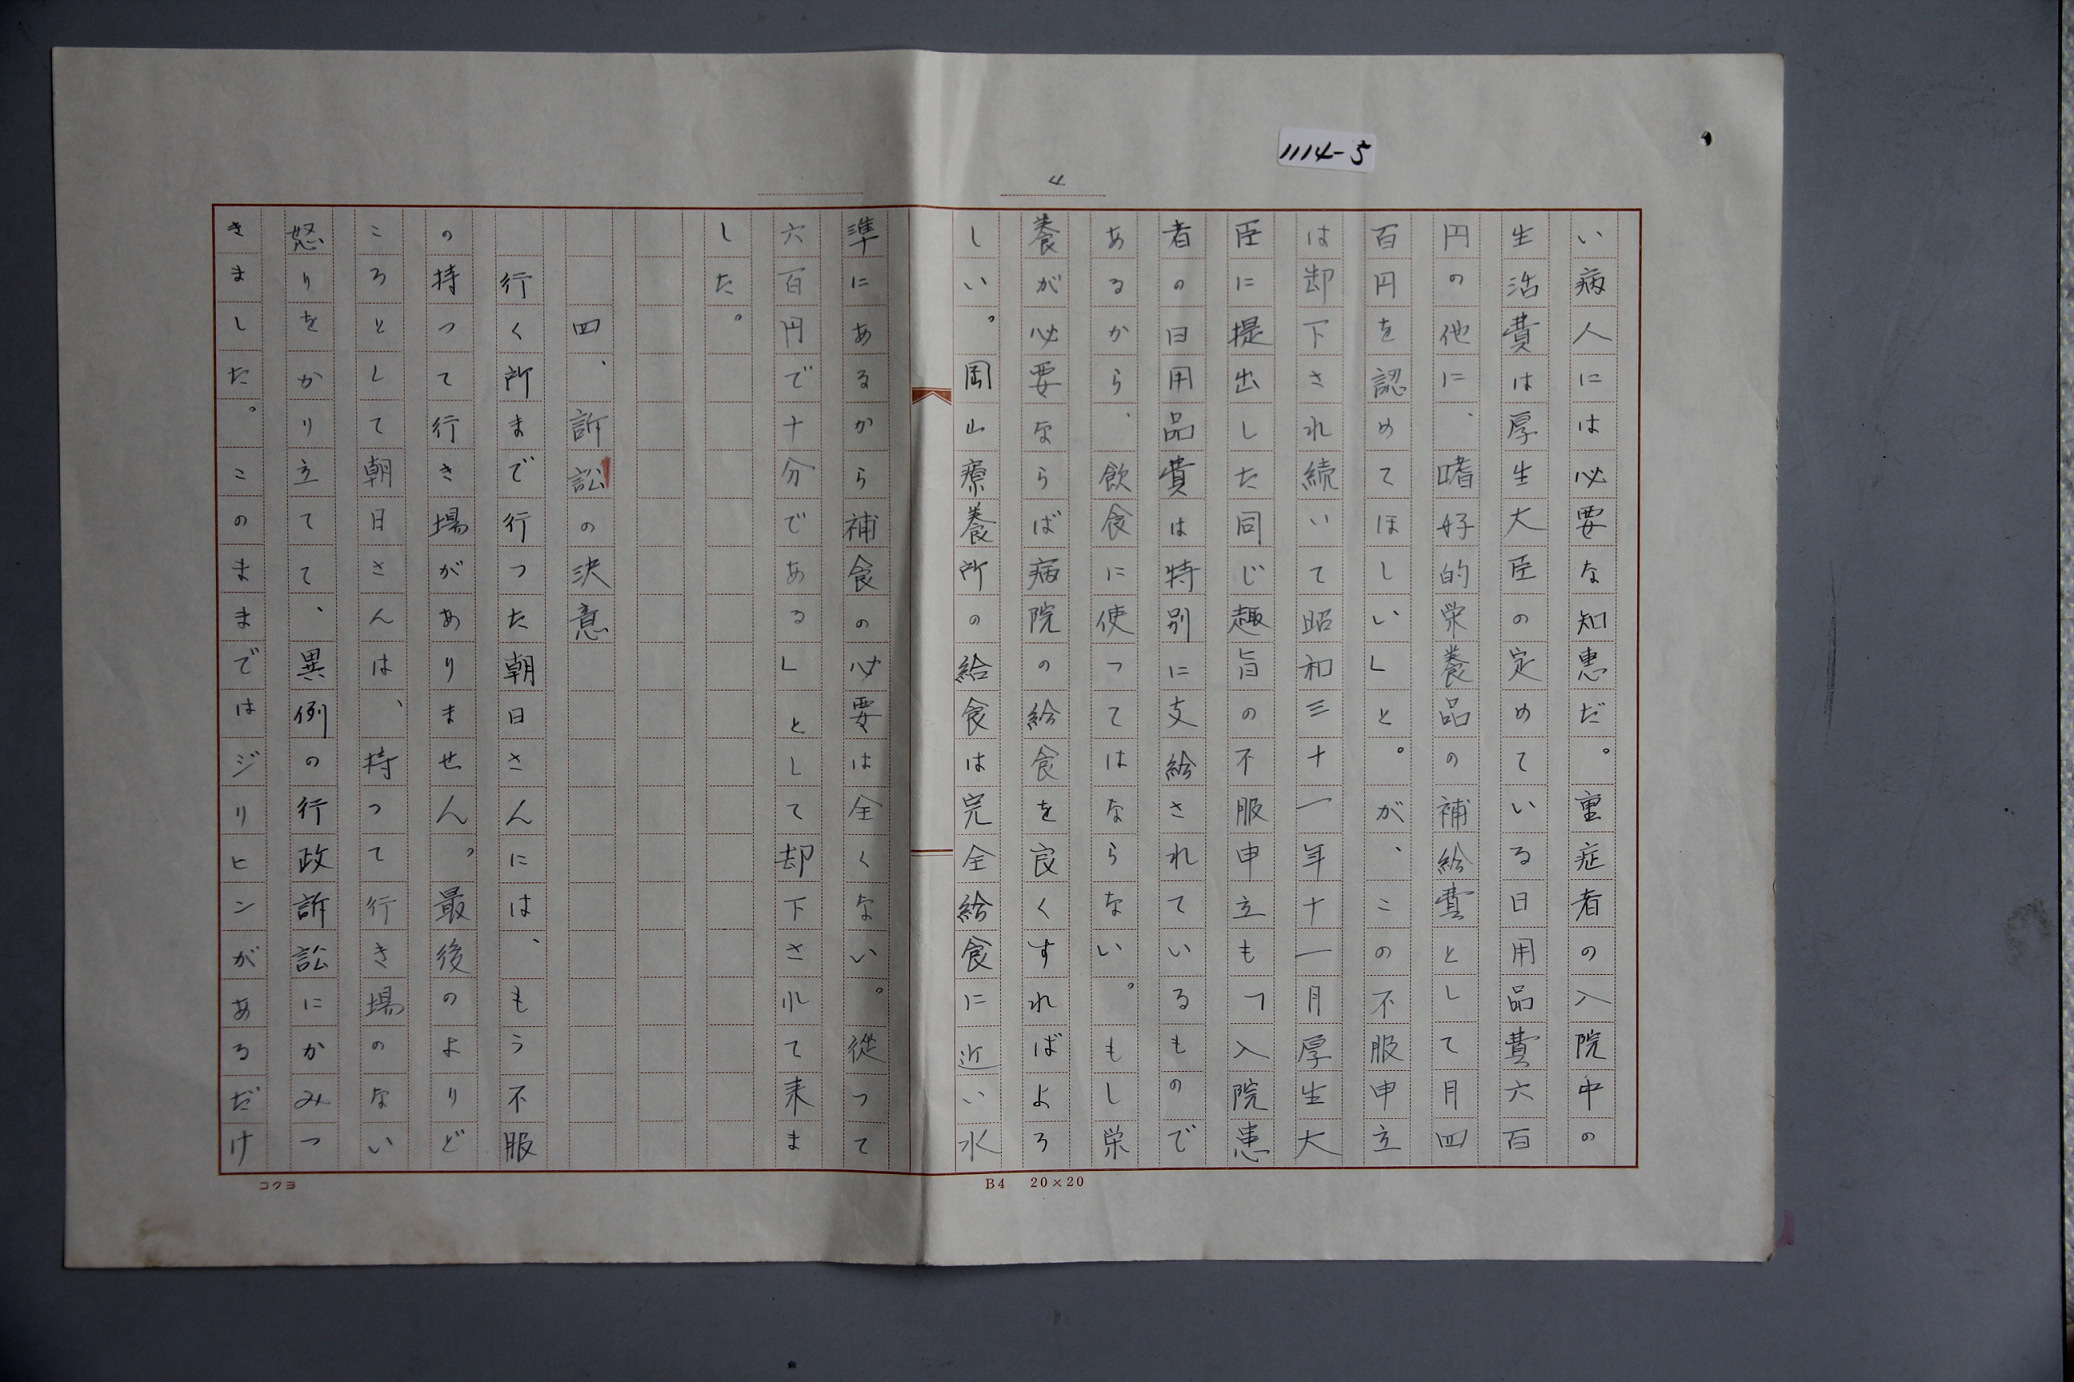 1114-5
4
い病人には必要な知恵だ。重症者の入院中の
生活費は厚生大臣の定めている日用品費六百
円の他に、嗜好的栄養品の補給費として月四
百円を認めてほしい」と。が、この不服申立
は却下され続いて昭和三十一年十一月厚生大
臣に提出した同じ趣旨の不服申立も「入院患
者の日用品費は特別に支給されているもので
あるから、飲食に使ってはならない。もし栄
養が必要ならば病院の給食を良くすればよろ
しい。岡山療養所の給食は完全給食に近い水
準にあるから補食の必要は全くない。従って
六百円で十分である」として却下されて来ま
した。
四、訴訟の決意
行く所まで行った朝日さんには、もう不服
の持って行き場がありません。最後のよりど
ころとして朝日さんは、持って行き場のない
怒りをかり立てて、異例の行政訴訟にかみつ
きました。このままではジリヒンがあるだけ
コクヨ
B4 20×20